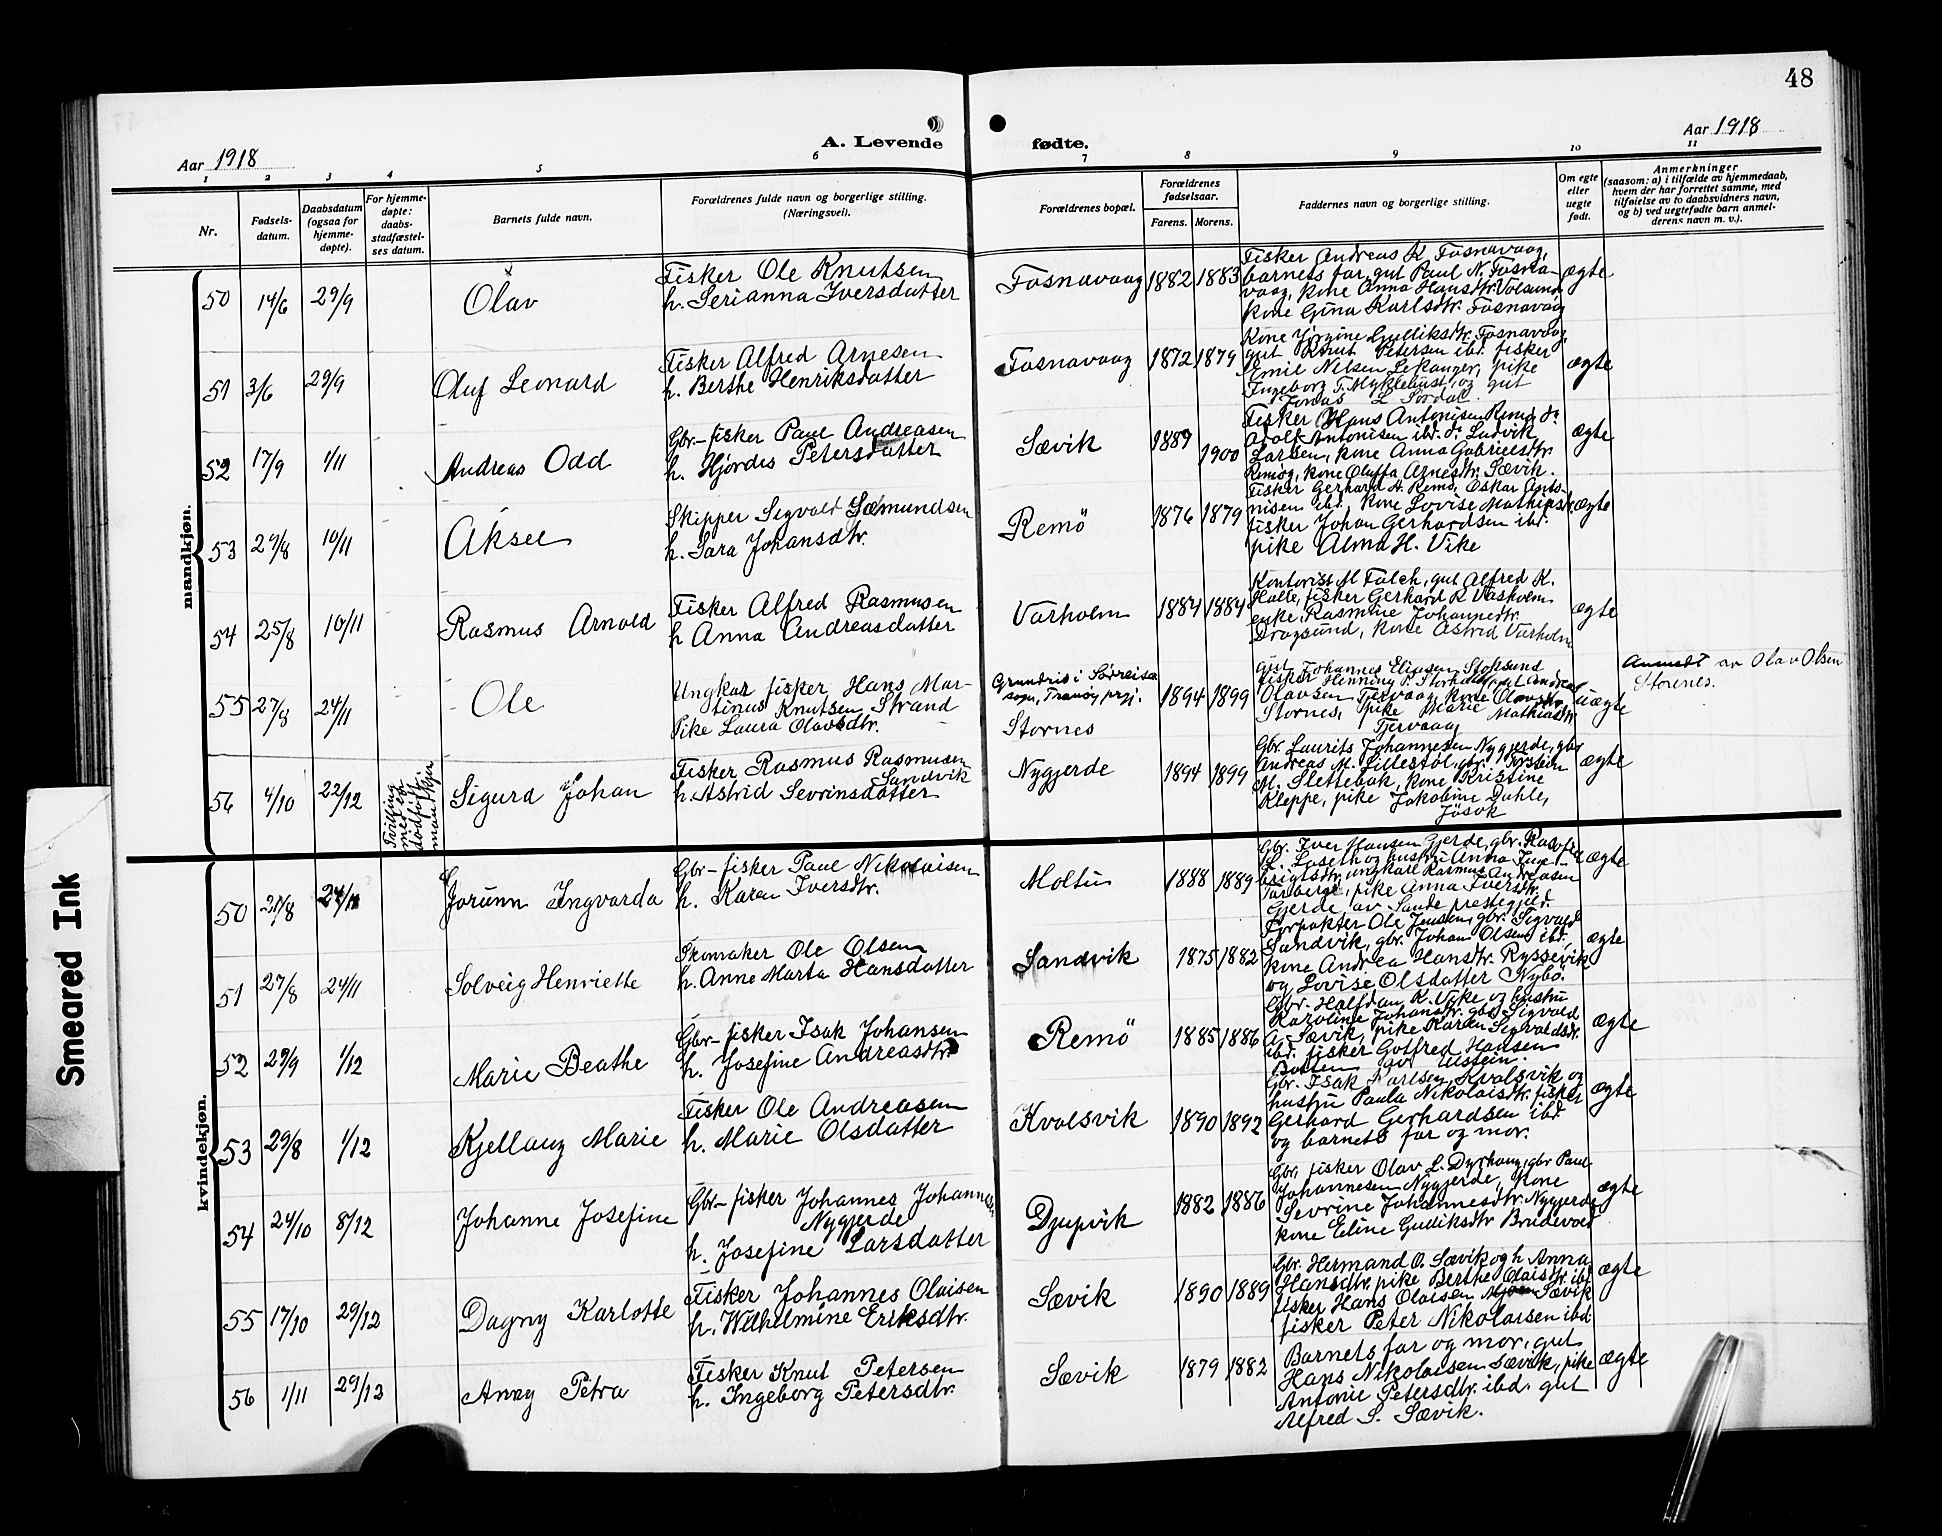 48
Aar 1918
A. Levende
fødte.
Aar 1918
1 2 3 4 5 6 7 8 9 10 11
Nr.
Fødsels-
datum.
Daabsdatum
(ogsaa for
hjemme-
døpte).
For hjemme-
døpte:
daabs-
stadfæstel-
ses datum.
Barnets fulde navn.
Forældrenes fulde navn og borgerlige stilling.
(Næringsvei).
Forældrenes bopæl.
Forældrenes
fødselsaar.
Farens. Morens.
Faddernes navn og borgerlige stilling.
Om egte
eller
uegte
født.
Anmerkninger
(saasom: a) i tilfælde av hjemmedaab,
hvem der har forrettet samme, med
tilføielse av to daabsvidners navn,
og b) ved uegtefødte barn anmel-
derens navn m. v.).
mandkjøn.
50 14/6 29/9 Olav
Fisker Ole Knutsen
h. Serianna Iversdatter
Fosnavaag 1882 1883
Fisker Andreas K Fosnavaag,
barnets far, gut Paul N. Fosna-
vaag, kone Anna Hansdtr. Volsund
kone Gina Karlsdtr. Fosnavaag
ægte
51 3/6 29/9 Oluf Leonard
Fisker Alfred Arnesen
h. Berthe Henriksdatter
Fosnavaag 1872 1879
Kone Jørgine Gulliksdtr. Fosnavaag,
gut Knut Petersen ibd. fisker
Emil Nilsen Lekanger, pike
Ingeborg T. Myklebust, og gut
Jonas L Sordal.
ægte
52 17/9 1/11 Andreas Odd
Gbr-fisker Paul Andreasen
h. Hjørdes Petersdatter
Sævik 1889 1900
Fisker Hans Antonisen Remø, do
Adolf Antonisen ibd. do Ludvik
Larsen, kone Anna Gabrielsdtr.
Remøy, kone Oluffa Arnesdtr. Sævik.
ægte
53 29/8 10/11 Aksel
Skipper Sigvald Sæmundsen
h. Sara Johansdtr.
Remö 1876 1879
Fisker Gerhard H. Remö, Oskar Anto-
nisen ibd. kone Lovise Mathiasdtr.
fisker Johan Gerhardsen ibd.
pike Alma H. Vike
ægte
54 25/8 10/11 Rasmus Arnold
Fisker Alfred Rasmusen
h Anna Andreasdatter
Varholm 1884 1884
Kontorist M Falch, gut Alfred K.
Halte, fisker Gerhard K
enke, Rasmine Johannesdtr.
Dragsund, kone Astrid Varholm
ægte
55 27/8 24/11 Ole
Ungkar fisker Hans Mar-
tinus Knutsen Strand
Pike Laura Olavsdtr.
Grundreis i Sørreisa
sogn, Tranøy prgj.
Stornes
1894 1899
gut Johannes Eliasen Stoksund
fisker Henning P. gut Andreas
Olavsen Tjervaag, kone
Stornes, pike Marie Mathiasdtr.
Tjervaag
uægte
Anmeldt av Olav Olsen
Storenes.
56 4/10 22/12
Tvilling
med en
dødfødt
mandkjøn
Sigurd Johan
Fisker Rasmus Rasmusen
Sandvik
h. Astrid Sevrinsdatter
Nygjerde 1894 1899
Gbr. Laurits Johannesen Nygjerde, gbr
Andreas M. Lillestøl, gbr. Torstein
M. Slettebak, kone Kristine
Kleppe, pike Jakobine Duhle,
Jösok
ægte
kvindekjøn.
50 21/8 24/11 Jorunn Ingvarda
Gbr-fisker Paul Nikolaisen
h. Karen Iversdtr.
Moltu 1888 1889
Gbr. Iver Hansen Gjerde, gbr. Rasmus
L. og hustru Anna Inge-
brigtsdtr. ungkarl Rasmus Andreasen
pike Anna Iversdtr.
Gjerde, av Sande prestegjeld.
ægte
51 27/8 24/11 Solveig Henriette
Skomaker Ole Olsen
h. Anne Marta Hansdatter
Sandvik 1875 1882
Forpakter Ole Jensen, gbr. Sigvald
Sandvik, gbr. Johan Olsen ibd.,
kone Andrea Hansdtr. Ryssevik
og Lovise Olsdatter Nybö.
ægte
52 29/9 1/12 Marie Beathe
Gbr-fisker Isak Johansen
h. Josefine Andreasdtr.
Remö 1885 1886
Gbr. Halfdan K. Vike og hustru
Karoline Johansdtr. gbr. Sigvald
A. Sævik, pike Karen Sigvaldsdtr.
ibd. fisker Gotfred Hansen
Botten av Ulstein.
ægte
53 29/8 1/12 Kjellaug Marie
Fisker Ole Andreasen
h. Marie Olsdatter
Kvalsvik 1890 1892
Gbr. Isak Karlsen Kvalsvik og
hustru Paula Nikolaisdtr. fisker
Gerhard Gerhardsen ibd.
og barnets far og mor.
ægte
54 24/10 8/12 Johanne Josefine
Gbr-fisker Johannes Johannesen
Nygjerde
h. Josefine Larsdatter
Djupvik 1882 1886
Gbr. fisker Olav L. Dyrhaug, gbr Paul
Johannesen Nygjerde, kone
Sevrine Johannesdtr. Nygjerde,
kone Eline Gulliksdtr Brudevold
ægte
55 17/10 29/12 Dagny Karlotte
Fisker Johannes Olaisen
h. Wilhelmine Eriksdtr.
Sævik 1890 1889
Gbr. Hermand O. Sævik og h Anna
Hansdtr. pike Berthe Olaisdtr. ibd.
fisker Hans Olaisen Sævik
fisker Peter Nikolaisen ibd
ægte
56 1/11 29/12 Anny Petra
Fisker Knut Petersen
h. Ingeborg Petersdtr.
Sævik 1879 1882
Barnets far og mor, gut
Hans Nikolaisen Sævik, pike
Antonie Petersdtr. ibd. gut
Alfred S. Sævik.
ægte
Smeared Ink